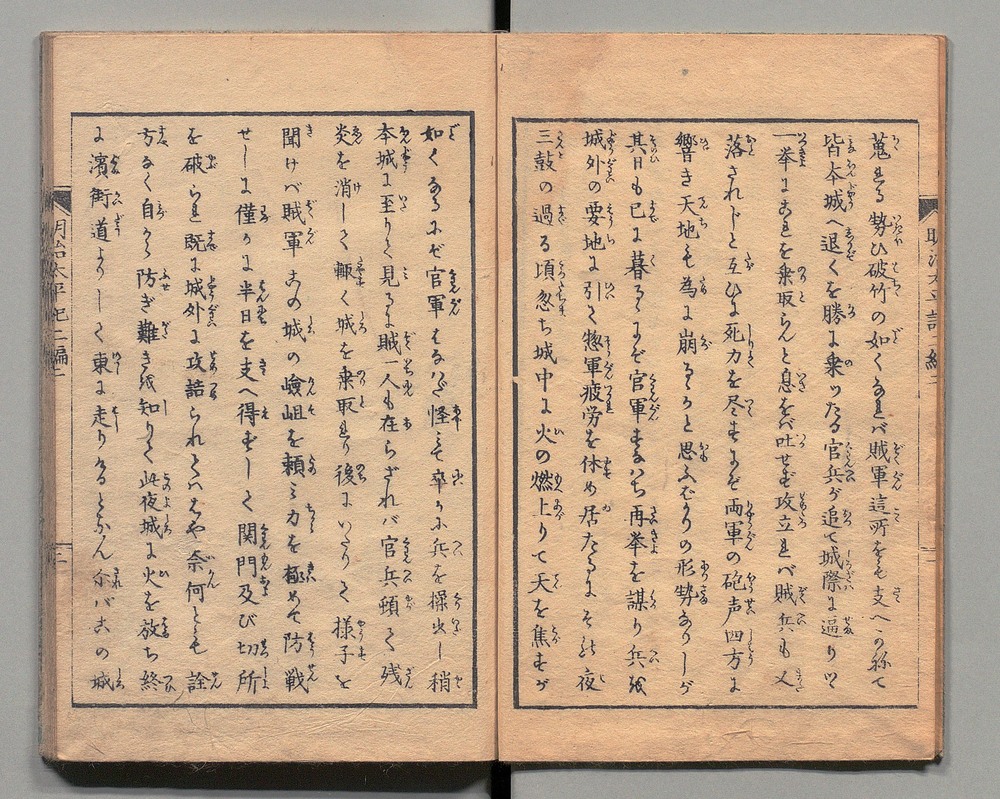 蒐まる勢ひ破竹の如くなれバ賊軍這所をも支へかねて
皆本城へ退くを勝に乗ツたる官兵が追て城際に逼りツ
一挙にこれを乗取らんと息をバ吐せず攻立れバ賊兵も又
落されじと互ひに死力を尽すにぞ両軍の砲声四方に
響き天地も為に崩るかと思ふばかりの形勢なりしが
其日も已に暮るにぞ官軍すなハち再挙を謀り兵を
城外の要地に引て惣軍疲労を休め居たるにその夜
三鼓の過る頃忽ち城中に火の燃上りて天を焦すが
如くなるにぞ官軍はなハだ怪しみて卒かに兵を操出し稍
本城に至りて見るに賊一人も在らざれバ官兵頓て残
炎を消して輙く城を乗取り後にいたりて様子を
聞けバ賊軍この城の嶮岨を頼ミ力を極めて防戦
せしに僅か半日を支へ得ずして関門及び切所
を破られ既に城外に攻詰られてハはや奈何とも詮
方なく自から防ぎ難きを知りて此夜城に火を放ち終
に濱街道よりして東に走りたるとかや 尓バこの城
明治太平記二編二
明治太平記二編二